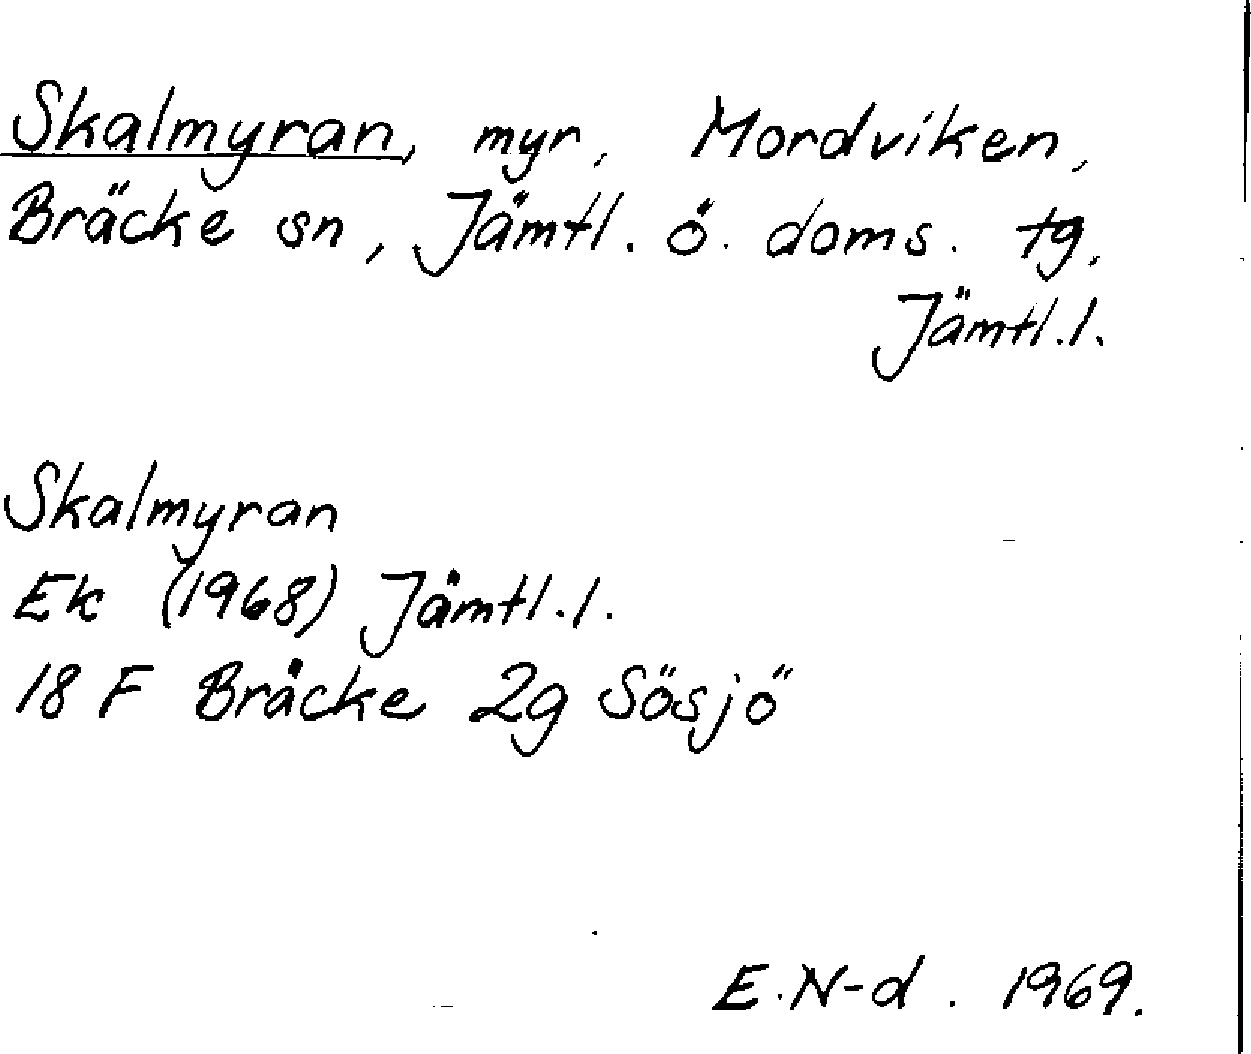 Skalmyran, myr, Mordviken,
Bräcke sn, Jämtl. ö. doms. tg,
Jämtl.l.
Skalmyran
Ek (1968) Jämtl.l.
18 F Bräcke 2g Sösjö
E.N-d. 1969.